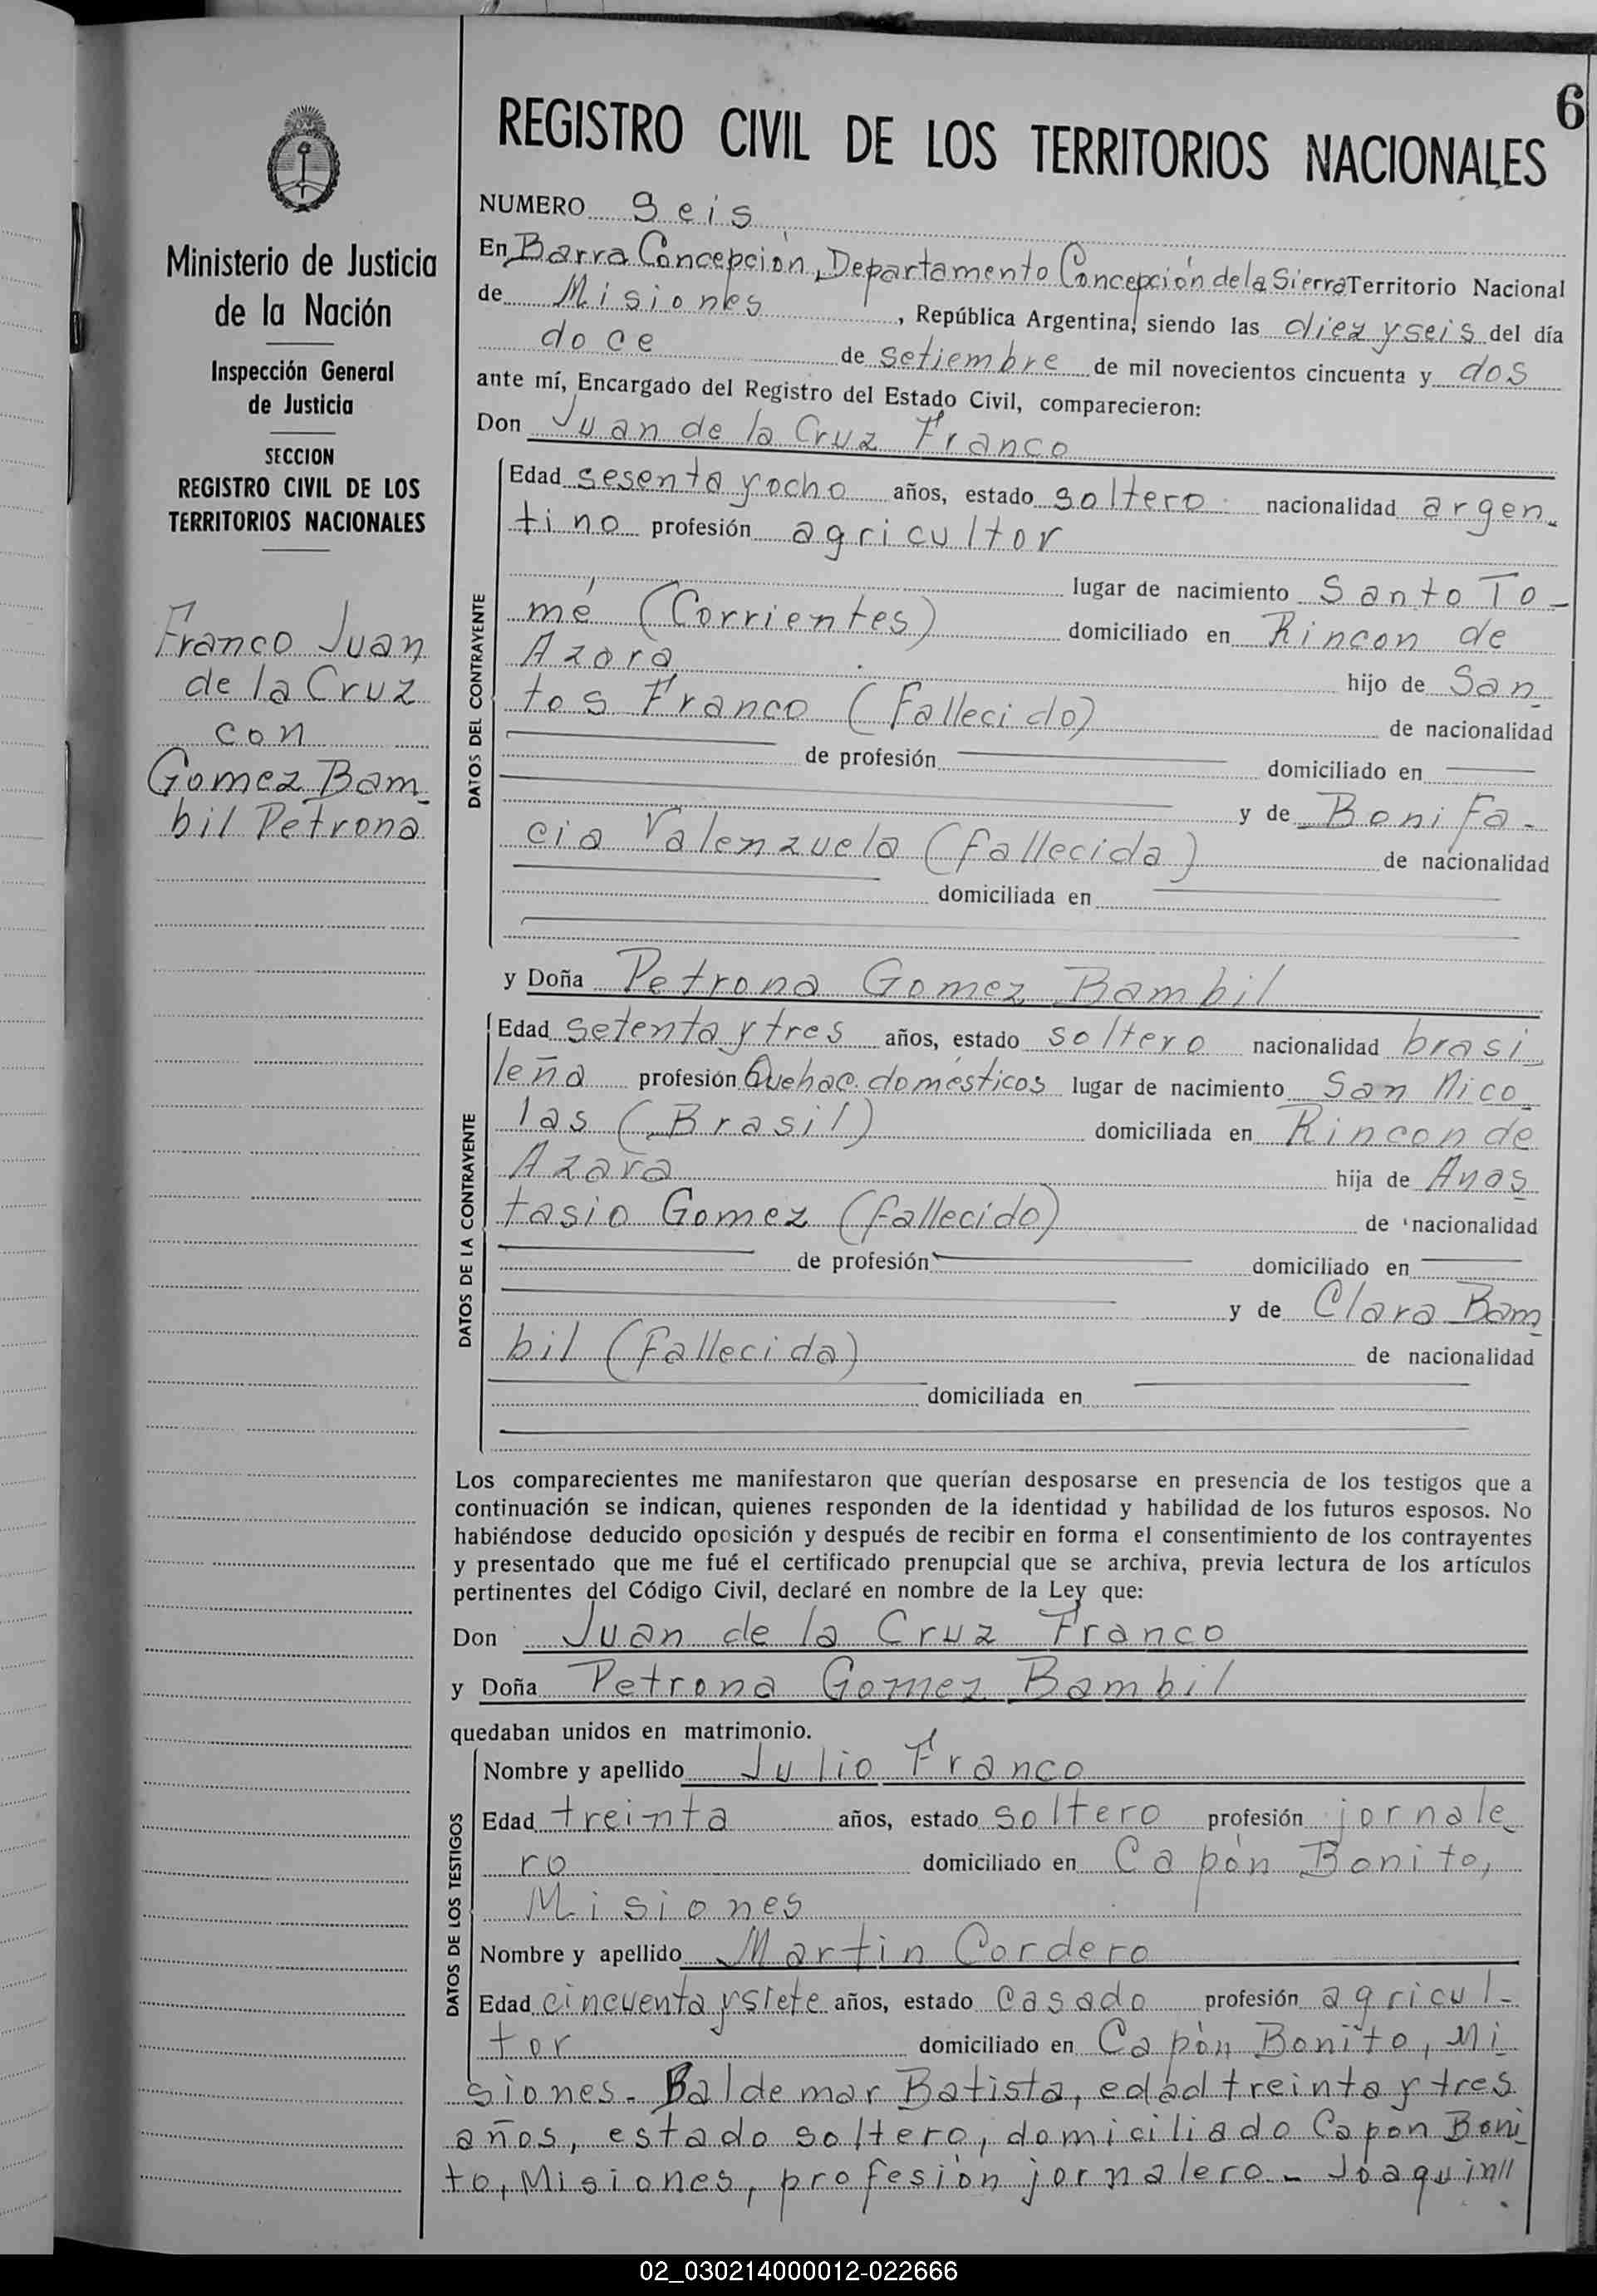 6
REGISTRO CIVIL DE LOS TERRITORIOS NACIONALES
Ministerio de Justicia
de la Nación
Inspección General
de Justicia
SECCION
REGISTRO CIVIL DE LOS
TERRITORIOS NACIONALES
Franco Juan
de la Cruz
con
Gomez Bam_
bil Petrona
NUMERO Seis
En Barra Concepción, Departamento Concepción de la Sierra Territorio Nacional
de Misiones, República Argentina, siendo las diez y seis del día
doce de setiembre de mil novecientos cincuenta y dos
ante mí, Encargado del Registro del Estado Civil, comparecieron:
Don Juan de la Cruz Franco
DATOS DEL CONTRAYENTE
Edad sesenta y ocho años, estado soltero nacionalidad argen_
tino profesión agricultor
lugar de nacimiento Santo To_
mé (Corrientes) domiciliado en Rincon de
Azara hijo de San_
tos Franco (Fallecido) de nacionalidad
de profesión domiciliado en
y de Bonifa-
cia Valenzuela (fallecida) de nacionalidad
domiciliada en
y Doña Petrona Gomez Bambil
DATOS DE LA CONTRAYENTE
Edad setenta y tres años, estado soltero nacionalidad brasi_
leña profesión Quehac. domésticos lugar de nacimiento San Nico_
las (Brasil) domiciliada en Rincon de
Azara hija de Anas_
tasio Gomez (fallecido) de nacionalidad
de profesión domiciliado en
y de Clara Bam_
bil (Fallecida) de nacionalidad
domiciliada en
Los comparecientes me manifestaron que querían desposarse en presencia de los testigos que a
continuación se indican, quienes responden de la identidad y habilidad de los futuros esposos. No
habiéndose deducido oposición y después de recibir en forma el consentimiento de los contrayentes
y presentado que me fué el certificado prenupcial que se archiva, previa lectura de los artículos
pertinentes del Código Civil, declaré en nombre de la Ley que:
Don Juan de la Cruz Franco
y Doña Petrona Gomez Bambil
quedaban unidos en matrimonio.
DATOS DE LOS TESTIGOS
Nombre y apellido Julio Franco
Edad treinta años, estado soltero profesión jornale_
ro domiciliado en Capón Bonito,
Misiones
Nombre y apellido Martin Cordero
Edad cincuenta y siete años, estado casado profesión agricul-
tor domiciliado en Capón Bonito, Mi_
siones. Baldemar Batista, edad treinta y tres
años, estado soltero, domiciliado Capon Boni_
to, Misiones, profesión jornalero - Joaquin//
02_030214000012-022666